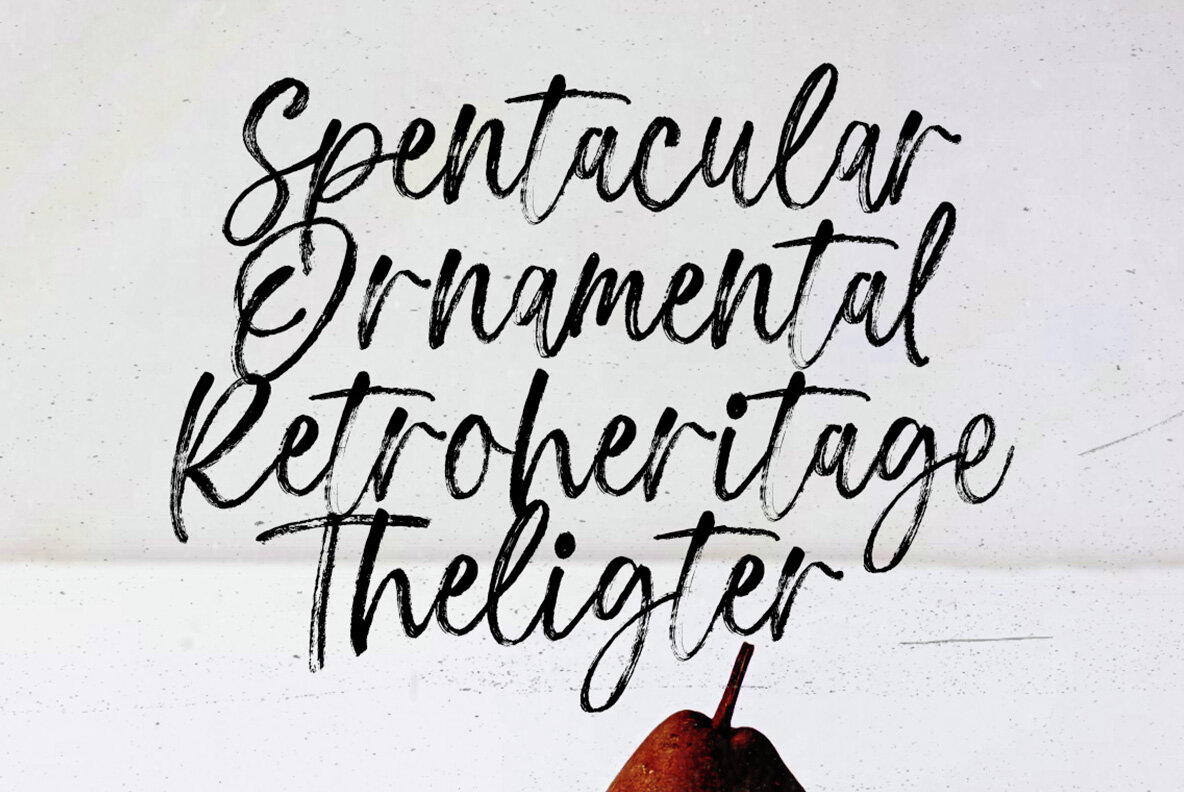 Spentacular
Ornamental
Retroheritage
Theligter